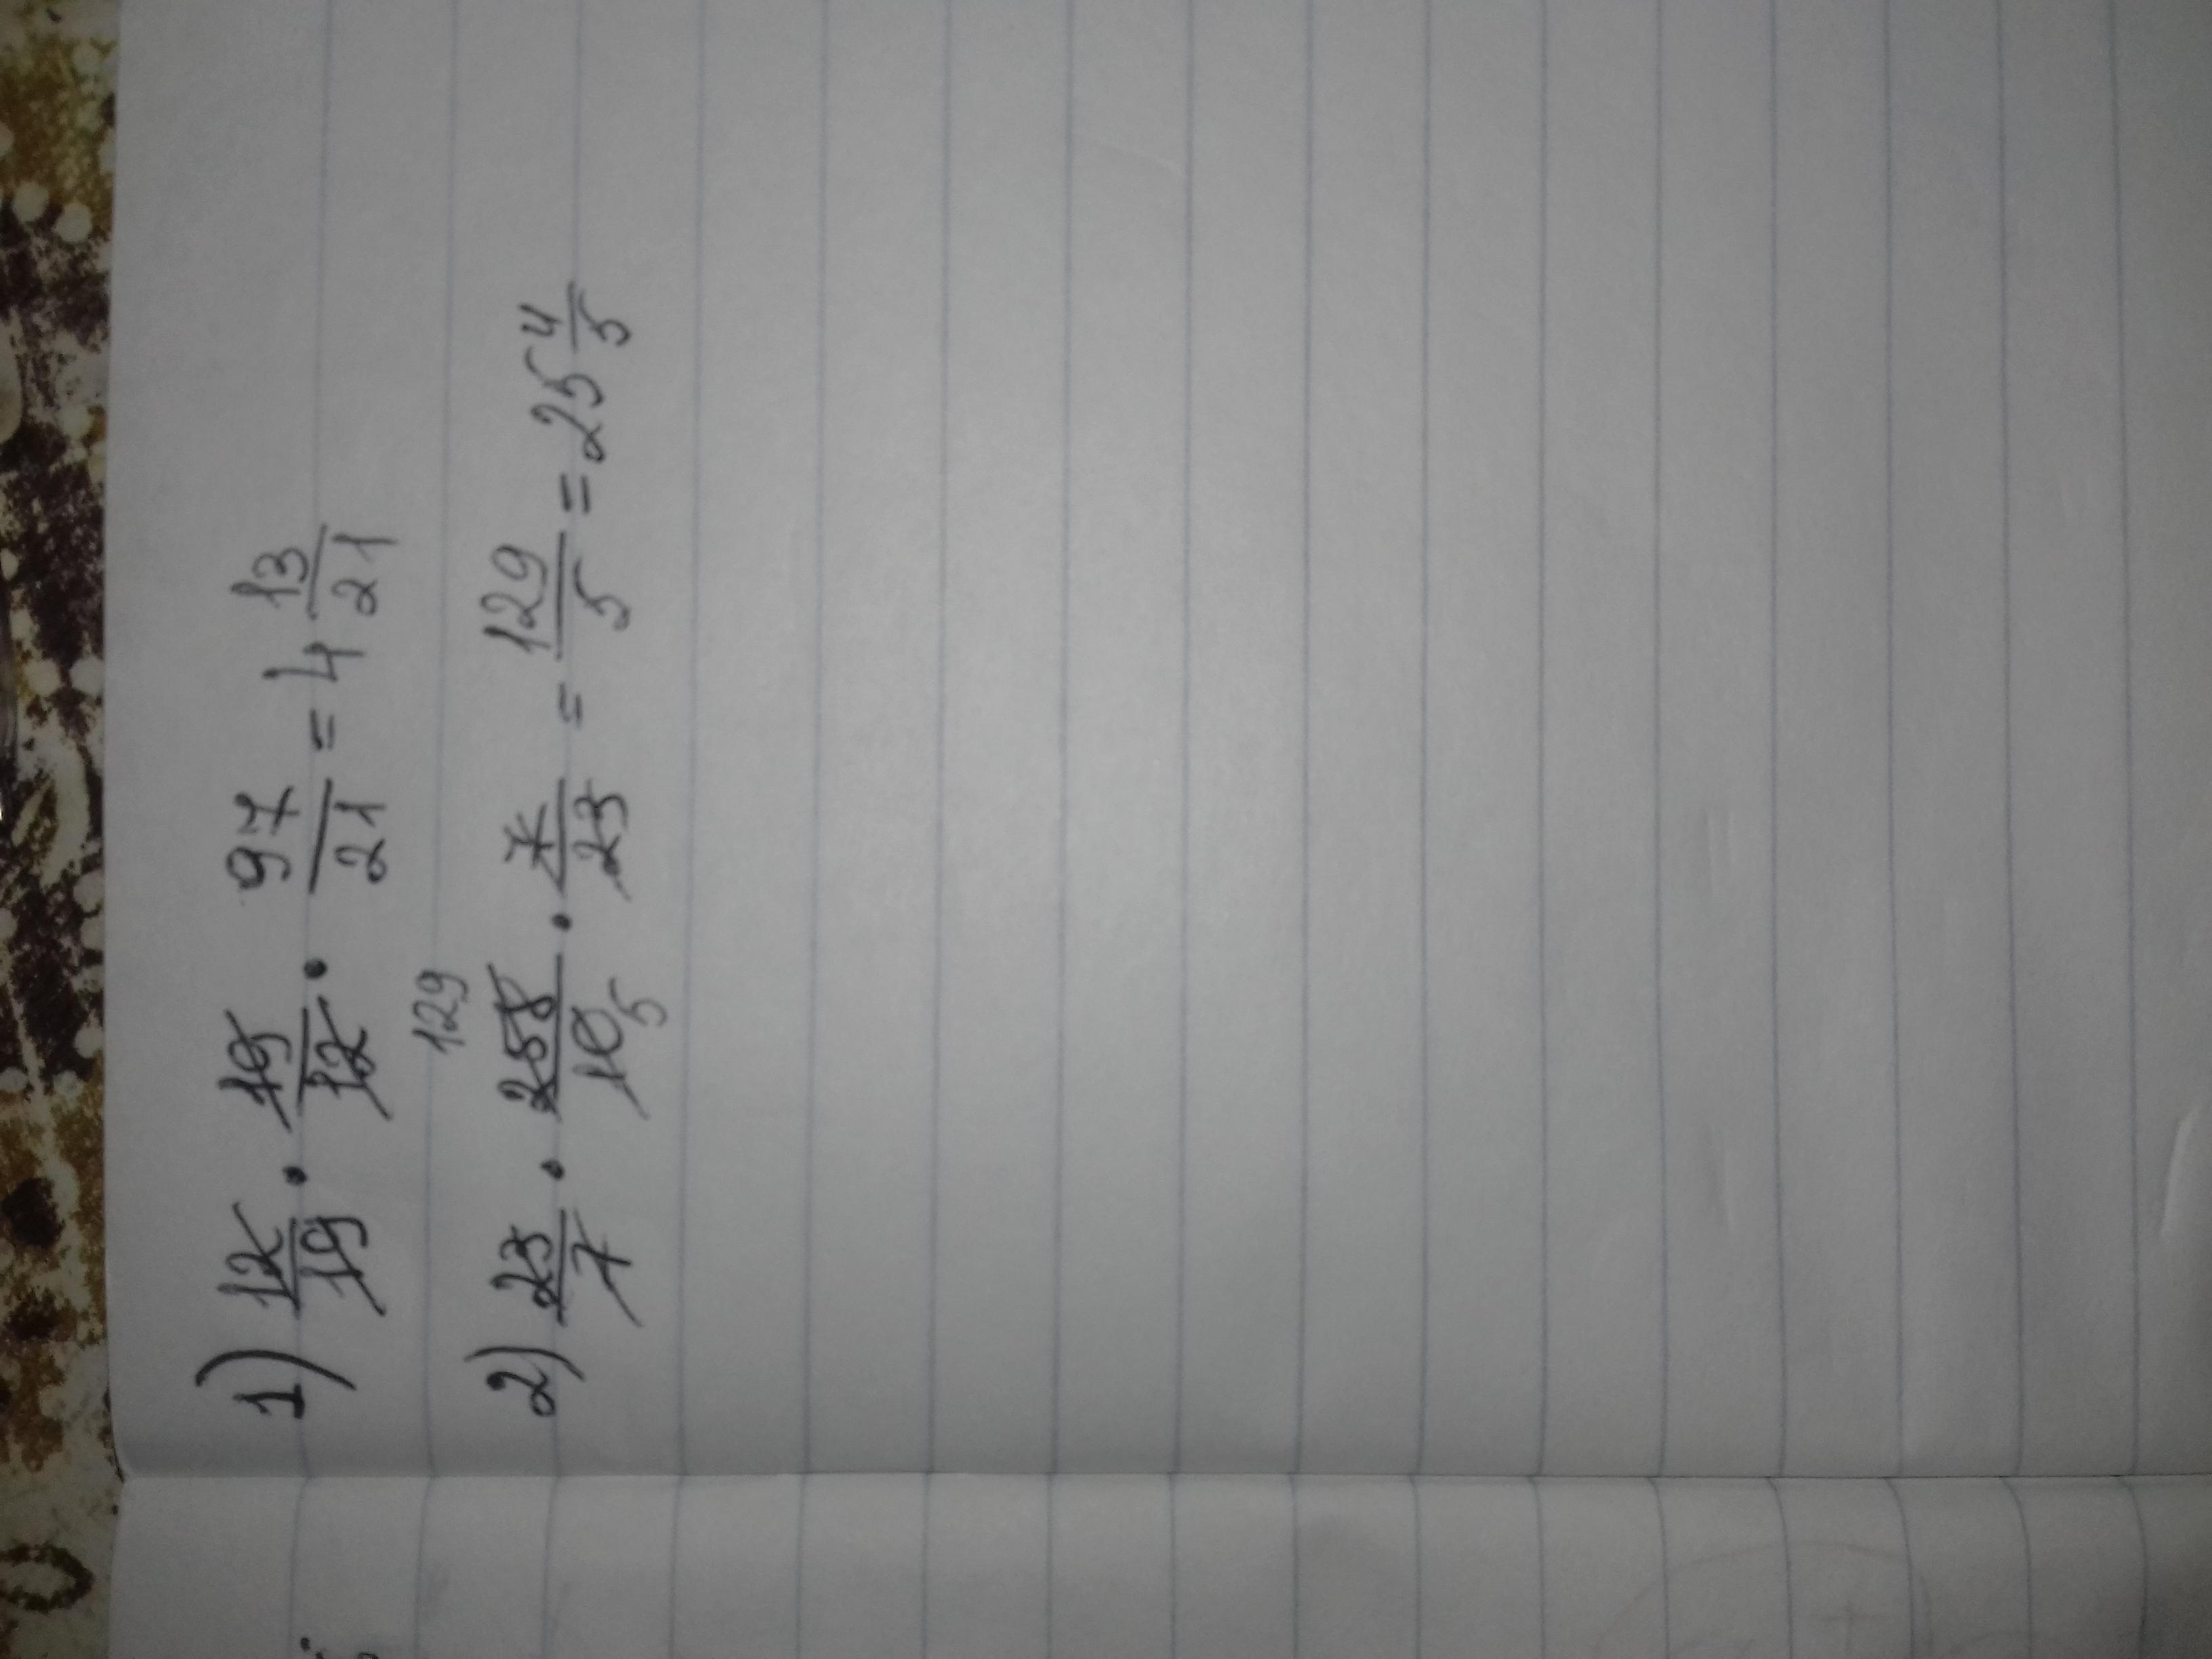 1) 12/19 · 19/12 · 97/21 = 4 13/21
129
2) 23/7 · 258/10 · 7/23 = 129/5 = 25 4/5
5